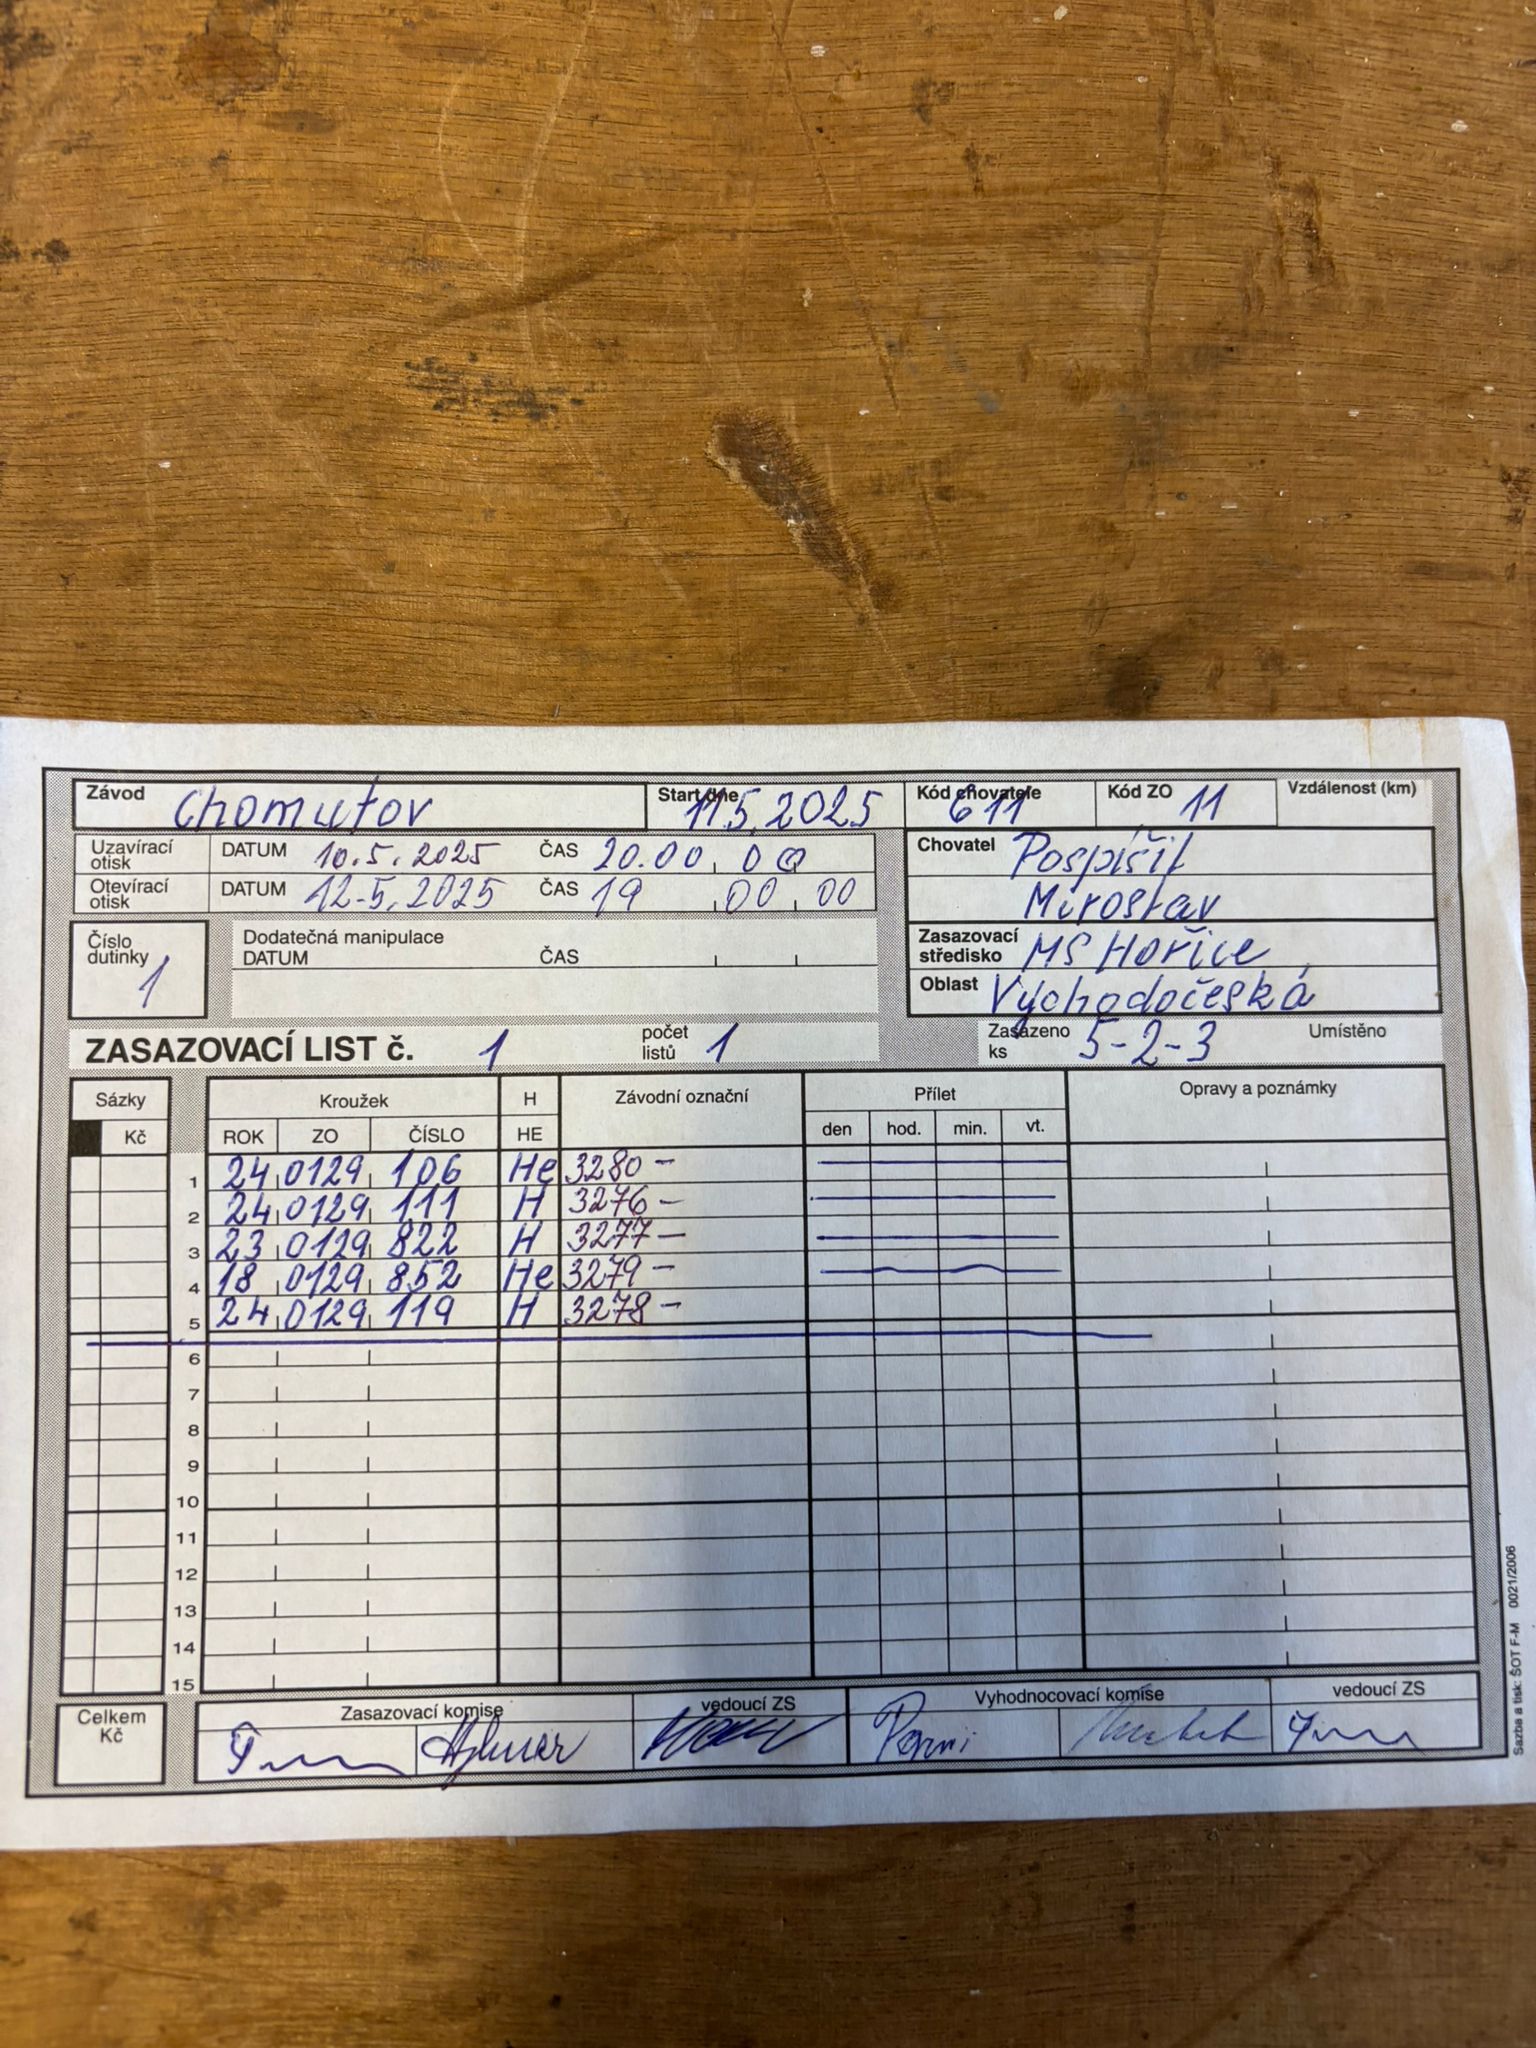 Závod Chomutov Start dne 11.5.2025 Kód chovatele 611 Kód ZO 11 Vzdálenost (km)
Uzavírací otisk DATUM 10.5.2025 ČAS 20.00 00
Otevírací otisk DATUM 12.5.2025 ČAS 19 00 00
Chovatel Pospíšil
Miroslav
Číslo dutinky 1
Dodatečná manipulace
DATUM ČAS
Zasazovací středisko MS Hořice
Oblast Východočeská
ZASAZOVACÍ LIST č. 1 počet listů 1 Zasazeno ks 5-2-3 Umístěno
Sázky Kroužek H Závodní označní Přílet Opravy a poznámky
Kč ROK ZO ČÍSLO HE den hod. min. vt.
1 24 0129 106 He 3280 -
2 24 0129 111 H 3276 -
3 23 0129 822 H 3277 -
4 18 0129 852 He 3279 -
5 24 0129 119 H 3278 -
6
7
8
9
10
11
12
13
14
15
Celkem Kč
Zasazovací komise vedoucí ZS Vyhodnocovací komise vedoucí ZS
Sazba a tisk: ŠOT F-M 0021/2006